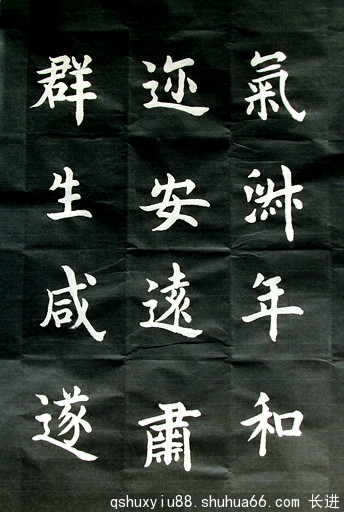 氣淑年和
迩安遠肅
群生咸遂
qshuxyiu88.shuhua66.com 长进